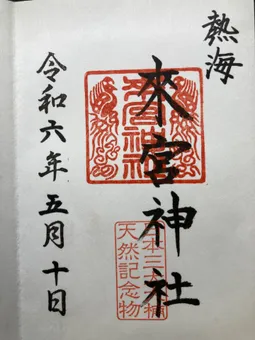 熱海
來宮神社
令和六年五月十日
來宮神社
日本三大樟
天然記念物